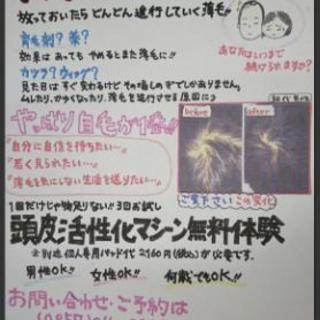 放っておいたら どんどん進行していく薄毛!!
育毛剤？薬？
効果はあっても やめるとまた薄毛に!!
あなたはいつまで
続けられますか？
カツラ？ウィッグ？
見た目はすぐ変わるけど その場しのぎでしかありません。
ムレたり、かゆくなったり、薄毛を進行させる原因に
やっぱり自毛が1番!!
before
after
"自分に自信を持ちたい…"
"若く見られたい…"
"薄毛を気にしない生活を送りたい…"
ご覧下さい この変化
1回だけじゃ物足りない!! 3回お試し
頭皮活性化マシーン無料体験
※別途 個人専用パッド代 2160円(税込)が必要です。
男性OK!! 女性OK!! 何歳でもOK!!
お問い合わせ・ご予約は